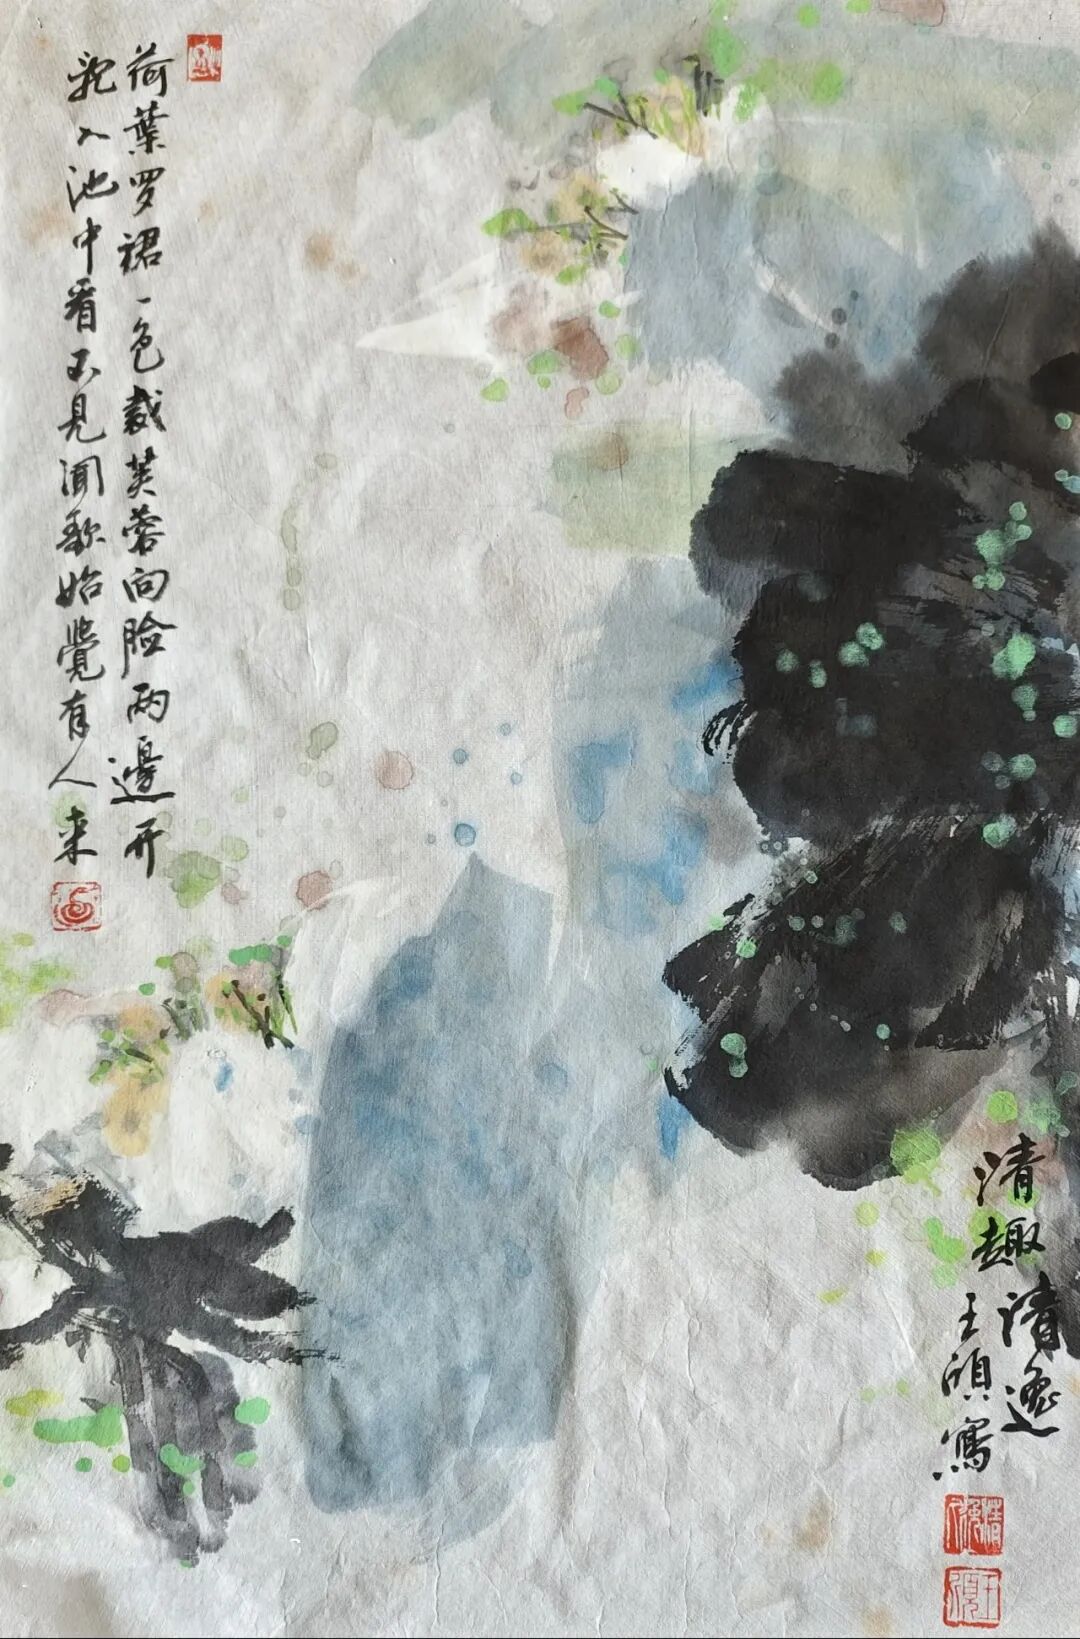 荷葉罗裙一色裁芙蓉向脸两邊开
乱入池中看不见闻歌始覺有人来
清趣清逸
王湏寫